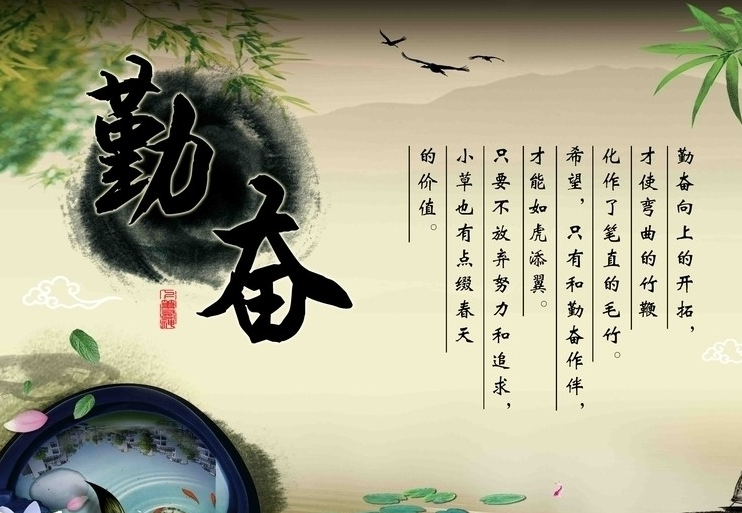 勤奋
勤奋向上的开拓，
才使弯曲的竹鞭
化作了笔直的毛竹。
希望，只有和勤奋作伴，
才能如虎添翼。
只要不放弃努力和追求，
小草也有点缀春天
的价值。